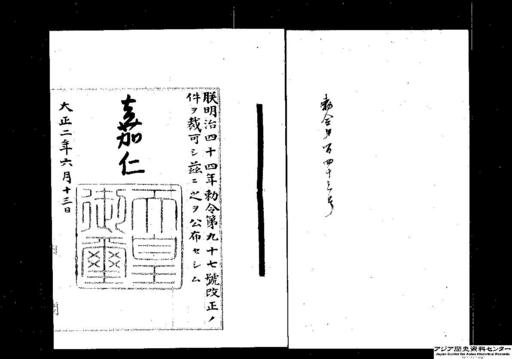 勅令第百四十三号
朕明治四十四年勅令第九十七號改正ノ
件ヲ裁可シ茲ニ之ヲ公布セシム
嘉仁
天皇
御璽
大正二年六月十三日
アジア歴史資料センター
Japan Center for Asian Historical Records